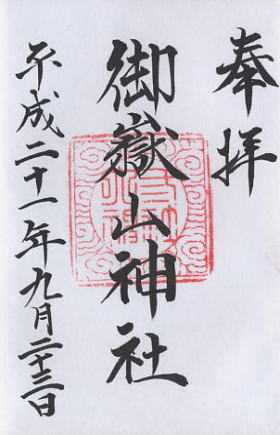 奉拝
御嶽山神社
平成二十一年九月二十三日